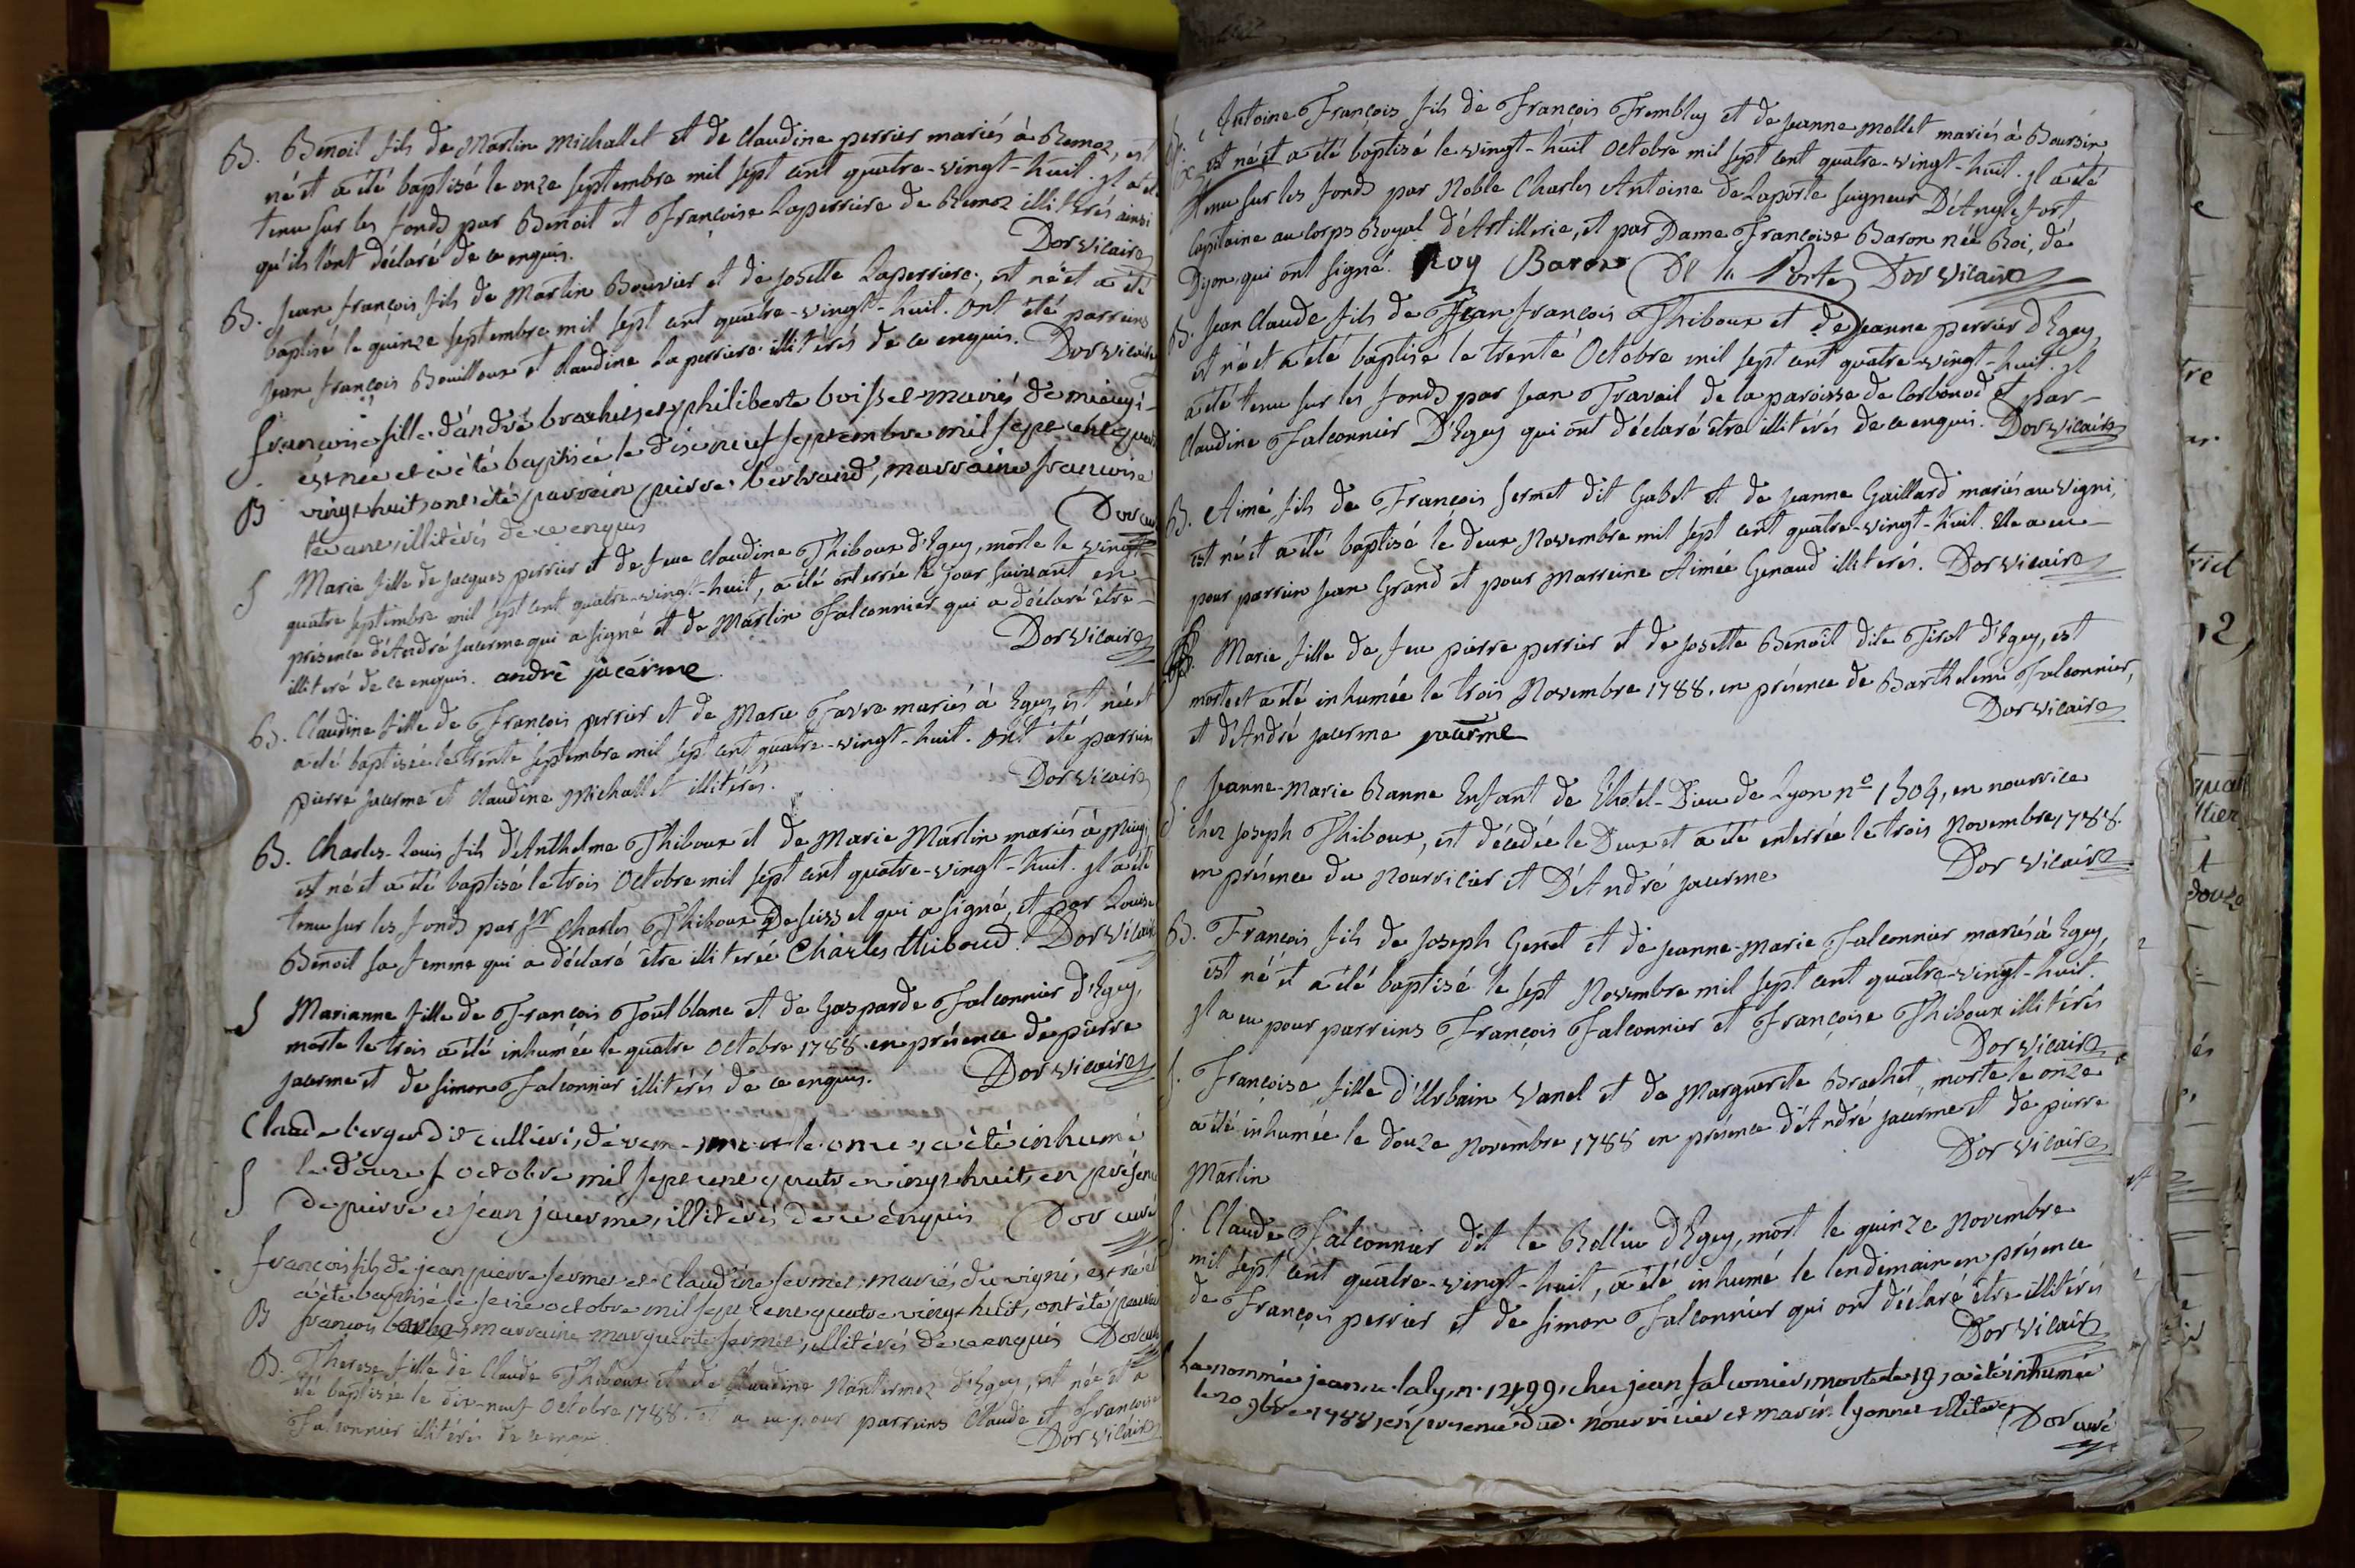 B. Benoit fils de Martin Michallet et de Claudine perrier mariés à Remoz, est
né et a été baptisé le onze septembre mil sept cent quatre-vingt-huit. Jl a été
tenu sur les fonds par Benoit et Françoise Laperriere de Remoz illitérés ainsi
qu'ils l'ont déclaré de ce enquis. Dor vicaire
B. Jean françois fils de Martin Bouvier et de Josette Laperriere, est né et a été
baptisé le quinze septembre mil sept cent quatre-vingt-huit. Ont été parreins
Jean françois Bouilloux et Claudine Laperriere illitérés de ce enquis. Dor vicaire
francoise fille d'andré brachet et philiberte boissel mariés de mieugi
est née et a été baptisée le dixneuf septembre mil sept cent quatre
B vingt huit ont été parrein pierre berthand, marraine francoise
illitérés de ce enquis Dor curé
S Marie fille de Jacques perrier et de feue Claudine Thiboux d'Egey, morte le vingt-
quatre septembre mil sept cent quatre-vingt-huit, a été enterrée le jour suivant en
presence d'André jacerme qui a signé et de Martin Falconnier qui a déclaré être
illiteré de ce enquis. andrè jacérme Dor vicaire
B. Claudine fille de François perrier et de Marie Favre mariés à Egey, est née et
a été baptisée le trente septembre mil sept cent quatre-vingt-huit. Ont été parreins
pierre jacerme et Claudine Michallet illitérés. Dor vicaire
B. Charles-Louis fils d'Anthelme Thiboux et de Marie Martin mariés à Mieugi
est né et a été baptisé le trois Octobre mil sept cent quatre-vingt-huit. Jl a été
tenu sur les fonds par Sr Charles Thiboux De seissel qui a signé, et par Louise
Benoit sa femme qui a déclaré être illiterée Charles thiboud. Dor vicaire
S Marianne fille de François Toutblanc et de Gasparde Falconnier d'Egey,
morte le trois a été inhumée le quatre Octobre 1788 en présence de pierre
jacerme et de simon Falconnier illitérés de ce enquis. Dor vicaire
Claude berger dit cullieri, mort le onze, a été inhumé
S le douze octobre mil sept cent quatre vingt huit en présence
de pierre et jean jacerme, illitérés de ce enquis Dor curé
francois fils de jean pierre sermet et claudine sermet mariés du vigni, est né et
a été baptisé le seize octobre mil sept cent quatre vingt huit, ont été parrein
B francois marraine marguerite sermet, illitérés de ce enquis Dor curé
B. Therese fille de Claude Thiboux et de Claudine Nantermoz d'Egey, est née et a
été baptisée le dix-neuf Octobre 1788. et a eu pour parreins Claude et Françoise
Falconnier illitérés de ce enquis Dor vicaire
Antoine François fils de François Tremblay et de Jeanne Mollet mariés à Boursin,
est né et a été baptisé le vingt-huit Octobre mil sept cent quatre-vingt-huit. Jl a été
tenu sur les fonds par Noble Charles Antoine de Laporte seigneur D'Anglefort
Capitaine au Corps Royal d'Artillerie, et par Dame Françoise Baron née Roi, de
Dijon, qui ont signé. Roy Baron De la Porte Dor vicaire
B. Jean Claude fils de Jean françois Thiboux et de Jeanne perrier d'Egey,
est né et a été baptisé le trente Octobre mil sept cent quatre-vingt-huit. Jl
a été tenu sur les fonds par Jean Travail de la paroisse de Corbonod et par
Claudine Falconnier D'Egey qui ont déclaré être illitérés de ce enquis. Dor vicaire
B. Aimé fils de François Sermet dit Gabet et de Jeanne Gaillard mariés au Vigni,
est né et a été baptisé le deux Novembre mil sept cent quatre-vingt-huit. Il a eu
pour parrein Jean Grand et pour Marreine Aimée Genaud illitérés. Dor vicaire
Marie fille de feu pierre perrier et de Josette Benoit dite Tirot d'Egey, est
morte et a été inhumée le trois Novembre 1788. en présence de Barthelemi Falconnier,
et d'André jacerme jacerme Dor vicaire
S. Jeanne-Marie Ranne Enfant de l'hotel-Dieu de Lyon no 1304, en nourrice
chez Joseph Thiboux, est décedée le Deux et a été enterrée le trois Novembre 1788.
en présence du Nourricier et D'André jacerme Dor vicaire
B. François fils de Joseph Genet et de Jeanne-Marie Falconnier mariés à Egey,
est né et a été baptisé le sept Novembre mil sept cent quatre-vingt-huit.
Jl a eu pour parreins François Falconnier et Françoise Thiboux illitérés
Dor vicaire
S. Françoise fille d'Urbain Vanel et de Marguerite Brachet, morte le onze
a été inhumée le douze Novembre 1788 en présence d'André jacerme et de pierre
Martin Dor vicaire
S. Claude Falconnier dit le Rollin d'Egey, mort le quinze Novembre
mil sept cent quatre-vingt-huit, a été inhumé le lendemain en présence
de François perrier et de simon Falconnier qui ont déclaré être illitérés
Dor vicaire
La nommée jeanne laly, n. 12499, chez jean falconnier, morte le 19, a été inhumée
le 20 9bre 1788, en presence dud. nourricier et marie lyonnet illiteres Dor curé